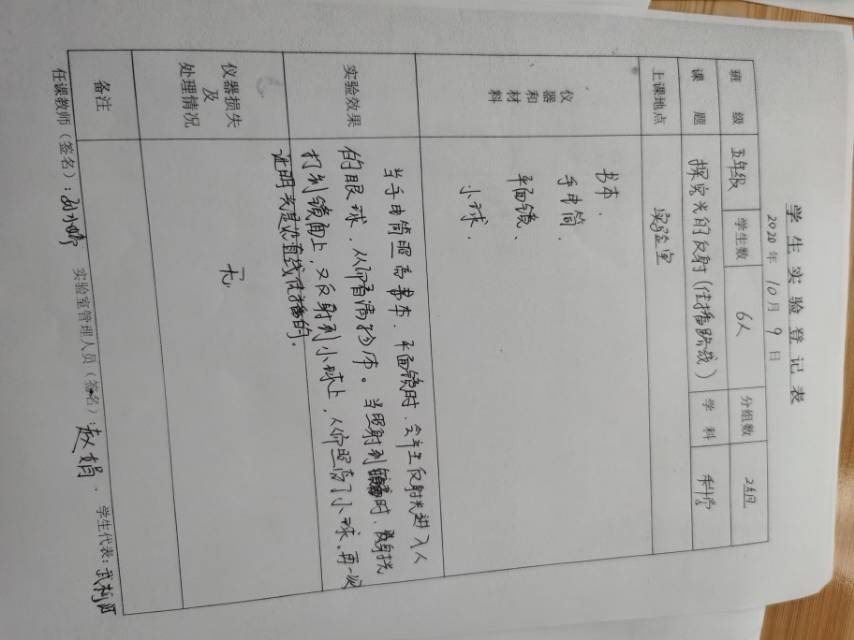 学生实验登记表
2020年10月9日
班级 五年级 学生数 6人 分组数 2组
课题 探究光的反射(传播路线) 学科 科学
上课地点 实验室
仪器和材料
书本、
手电筒、
平面镜、
小球.
实验效果
当手电筒照亮书本、平面镜时,会产生反射光进入人
的眼球,从而看清物体。当照射到镜面时,反射光
打到镜面上,又反射到小球上,从而照亮了小球,再一次
证明光是沿直线传播的。
仪器损失及处理情况 无.
备注
任课教师(签名): 实验室管理人员(签名) 赵娟. 学生代表: